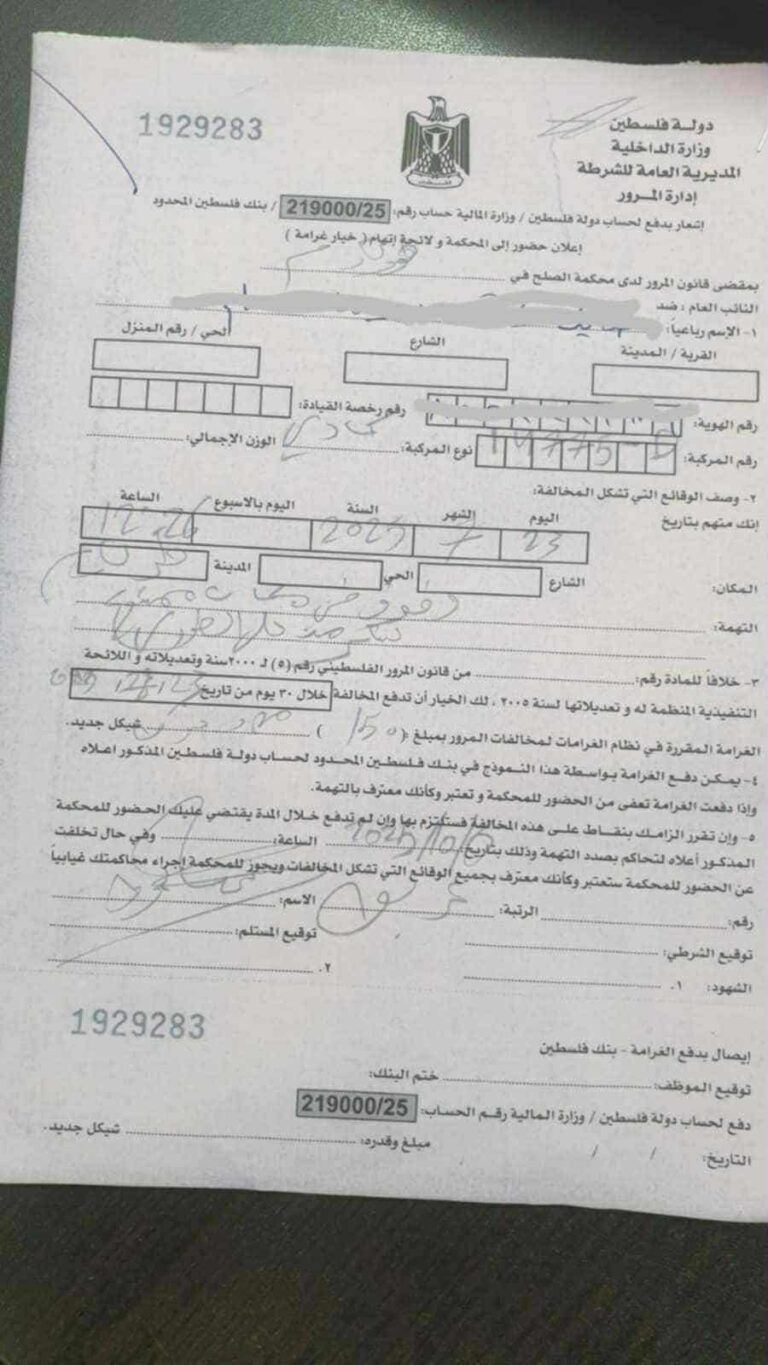 1929283
دولة فلسطين
وزارة الداخلية
المديرية العامة للشرطة
إدارة المرور
فلسطين
إشعار بدفع لحساب دولة فلسطين / وزارة المالية حساب رقم: 219000/25 / بنك فلسطين المحدود
إعلان حضور إلى المحكمة و لائحة إتهام ( خيار غرامة )
بمقضى قانون المرور لدى محكمة الصلح في
النائب العام : ضد
١- الإسم رباعياً:
القرية / المدينة الشارع الحي / رقم المنزل
رقم الهوية: رقم رخصة القيادة:
رقم المركبة: نوع المركبة: الوزن الإجمالي:
٢- وصف الوقائع التي تشكل المخالفة:
اليوم الشهر السنة اليوم بالاسبوع الساعة
إنك متهم بتاريخ 23 7 2025 12:26
المكان: الشارع الحي المدينة
التهمة:
٣- خلافاً للمادة رقم: من قانون المرور الفلسطيني رقم (٥) لـ ٢٠٠٠سنة وتعديلاته و اللائحة
التنفيذية المنظمة له و تعديلاتها لسنة ٢٠٠٥ ، لك الخيار أن تدفع المخالفة خلال ٣٠ يوم من تاريخ
الغرامة المقررة في نظام الغرامات لمخالفات المرور بمبلغ :( 150 ) شيكل جديد.
٤- يمكن دفع الغرامة بواسطة هذا النموذج في بنك فلسطين المحدود لحساب دولة فلسطين المذكور اعلاه
وإذا دفعت الغرامة تعفى من الحضور للمحكمة و تعتبر وكأنك معترف بالتهمة.
٥- وإن تقرر الزامك بنقاط على هذه المخالفة فستلتزم بها وإن لم تدفع خلال المدة يقتضي عليك الحضور للمحكمة
المذكور أعلاه لتحاكم بصدد التهمة وذلك بتاريخ الساعة: وفي حال تخلفت
عن الحضور للمحكمة ستعتبر وكأنك معترف بجميع الوقائع التي تشكل المخالفات ويجوز للمحكمة إجراء محاكمتك غيابياً
رقم: الرتبة: الاسم:
توقيع الشرطي: توقيع المستلم:
الشهود: ١. ٢.
1929283
إيصال بدفع الغرامة - بنك فلسطين
توقيع الموظف: ختم البنك:
دفع لحساب دولة فلسطين / وزارة المالية رقم الحساب: 219000/25
مبلغ وقدره: شيكل جديد.
التاريخ: / /